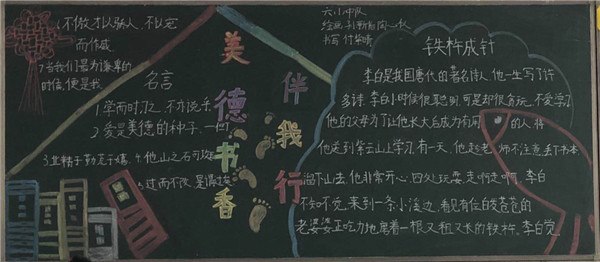 不做才以骄人,不以宠
而作威
当我们最为谦卑的
时候,便是我
名言
1.学而时习之,不亦说乎
2.爱是美德的种子。
3.业精于勤荒于嬉。4.他山之石可以
5.过而不改,是谓过矣
美德书香
伴我行
六小中队
书写 付华晴
铁杵成针
李白是我国唐代的著名诗人,他一生写了许
多诗,李白小时候很聪明,可是却很贪玩,不爱学习
他的父母为了让他长大后成为有用的人,将
他送到紫云山上学习,有一天,他趁老师不注意丢下书本
溜下山去,他非常开心,四处玩耍,走啊走啊,李白
不知不觉,来到一条小溪边,看见有位白发苍苍的
老婆婆正吃力地磨着一根又粗又长的铁杵,李白觉